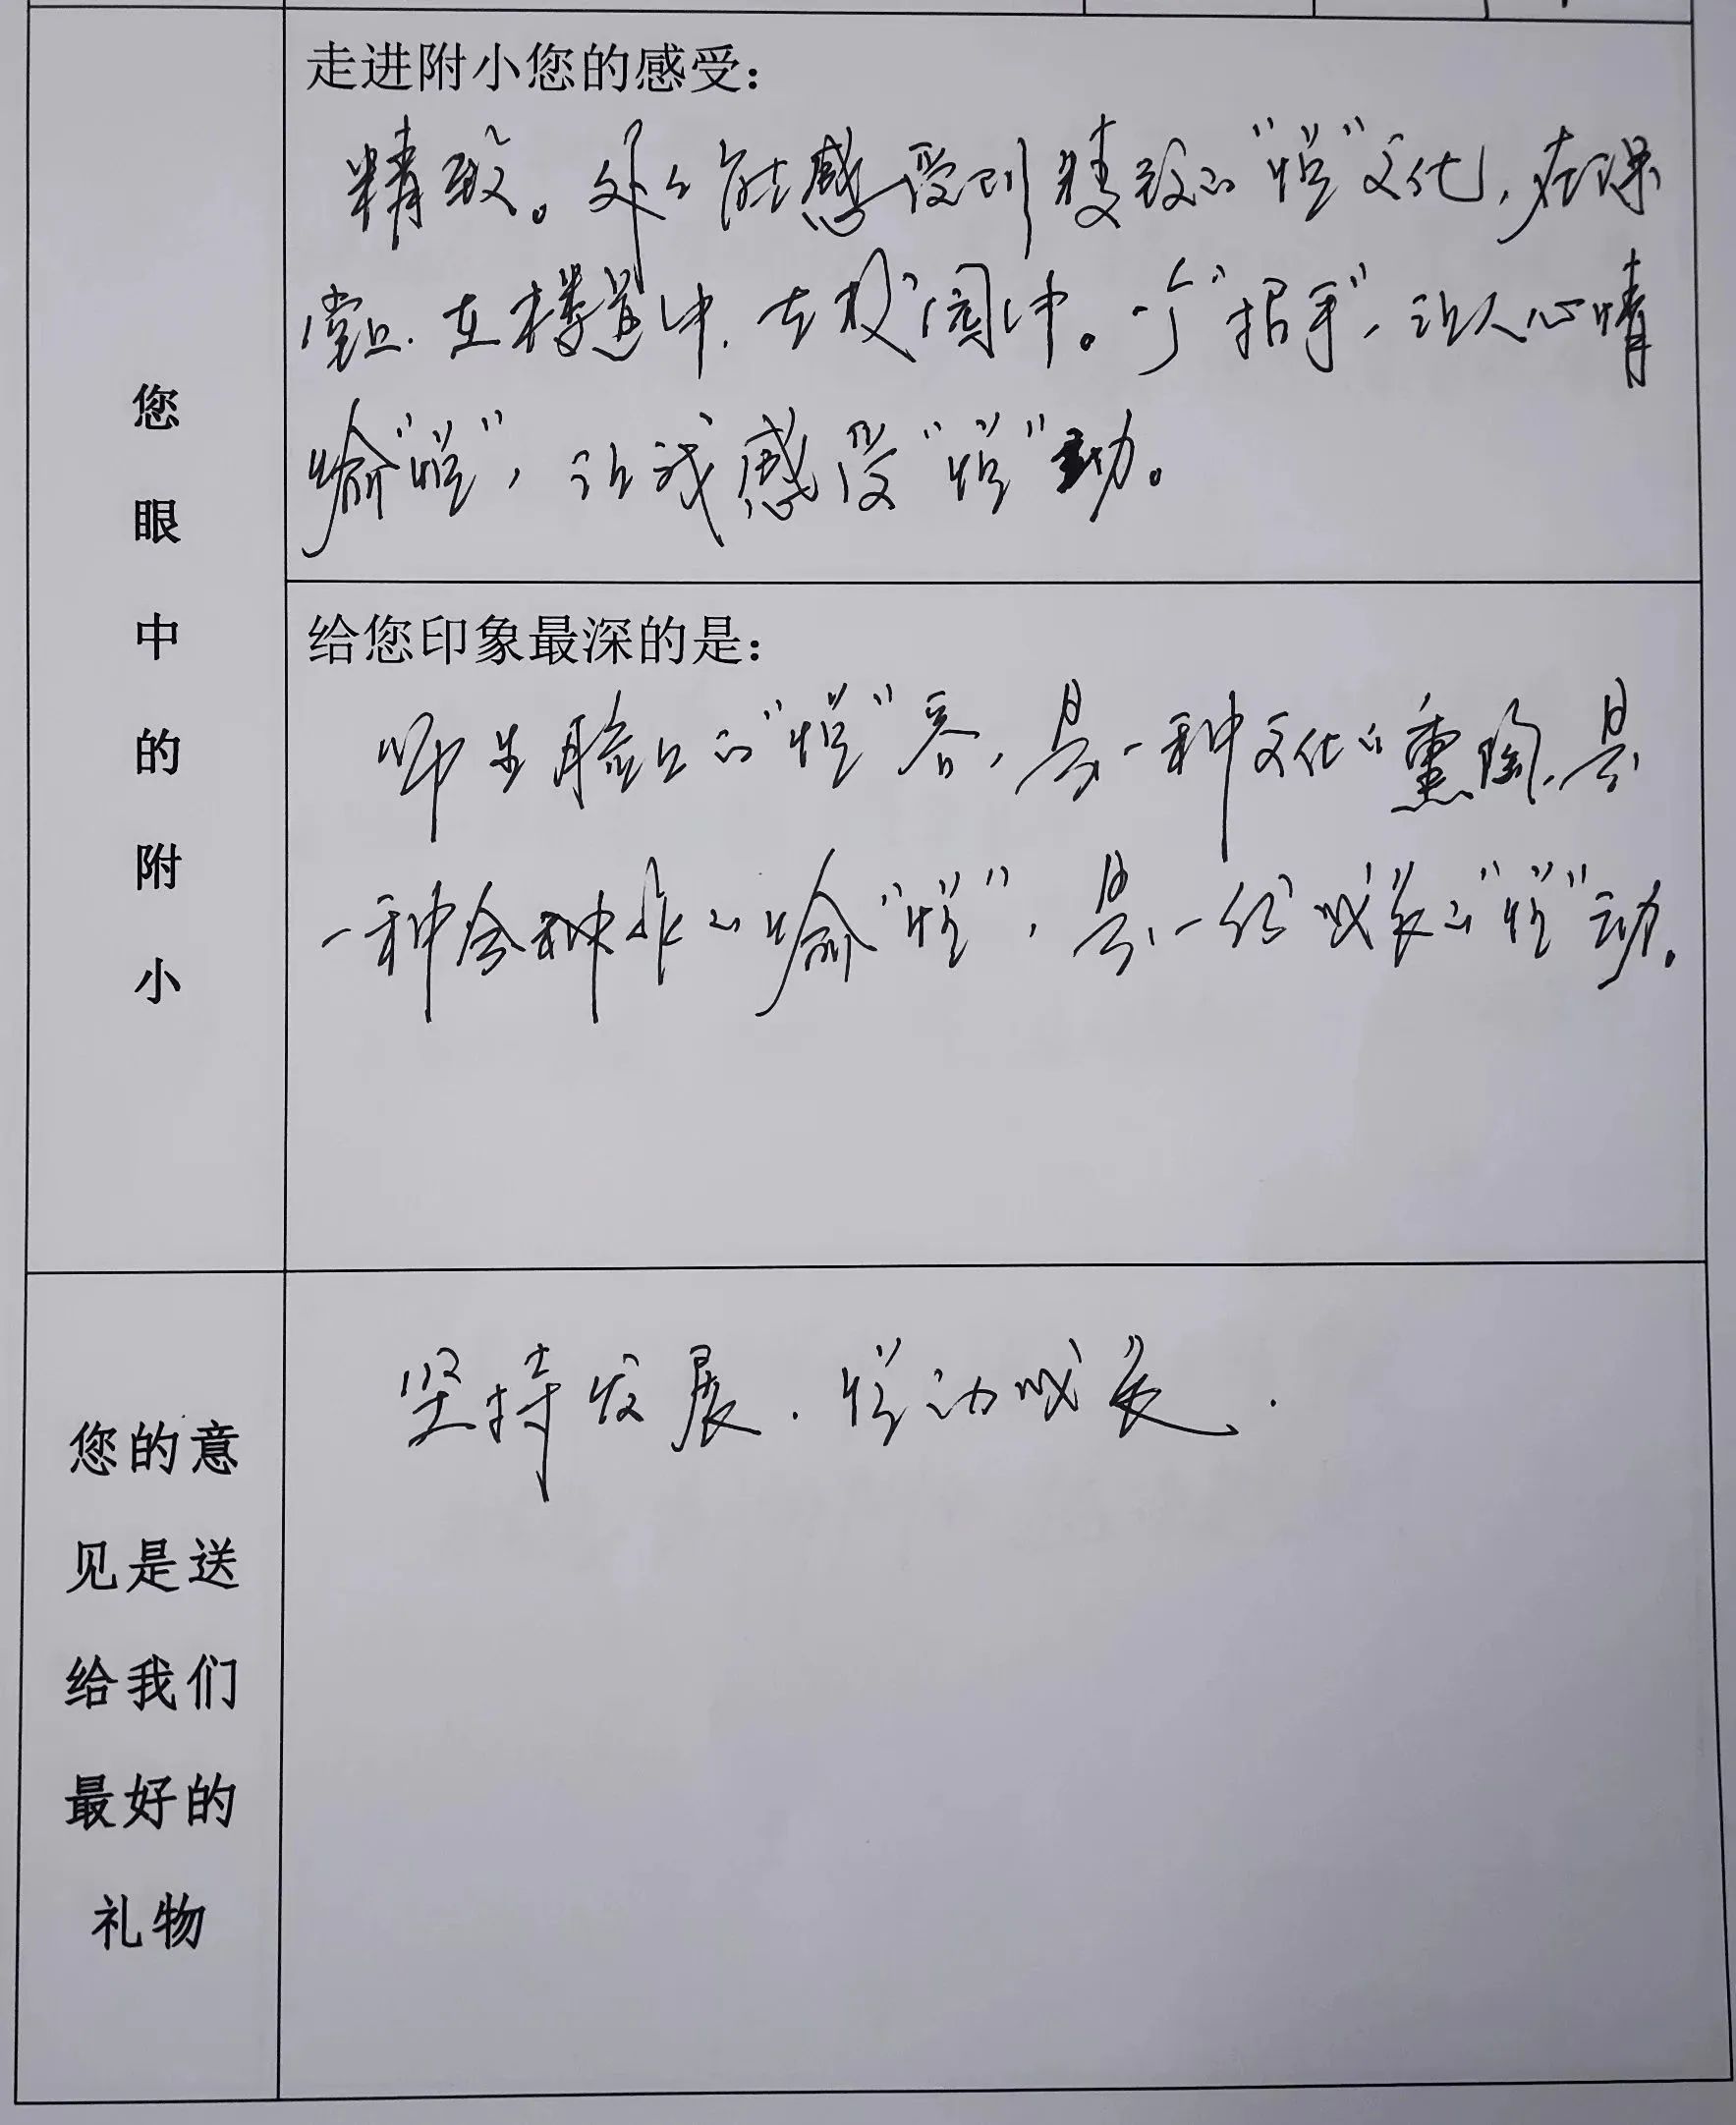 走进附小您的感受：
精致。处处能感受到精致的“悦”文化，在课
堂上.在楼道中.在校园中。一个“招手”，让人心情
愉“悦”，让我感受“悦”动。
您眼中的附小
给您印象最深的是：
师生脸上的“悦”容，是一种文化的熏陶，是
一种合作的愉“悦”，是一份成长的“悦”动。
您的意
见是送
给我们
最好的
礼物
坚持发展.悦动成长.